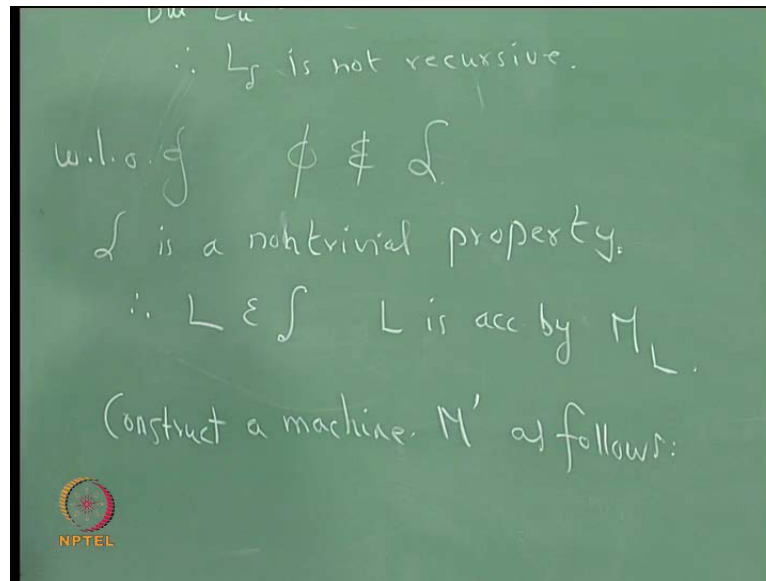 ∴ L_𝒮 is not recursive.
w.l.o.g ϕ ∉ 𝒮
𝒮 is a nontrivial property.
∴ L ∈ 𝒮 L is acc by M_L.
Construct a machine. M' as follows:
NPTEL